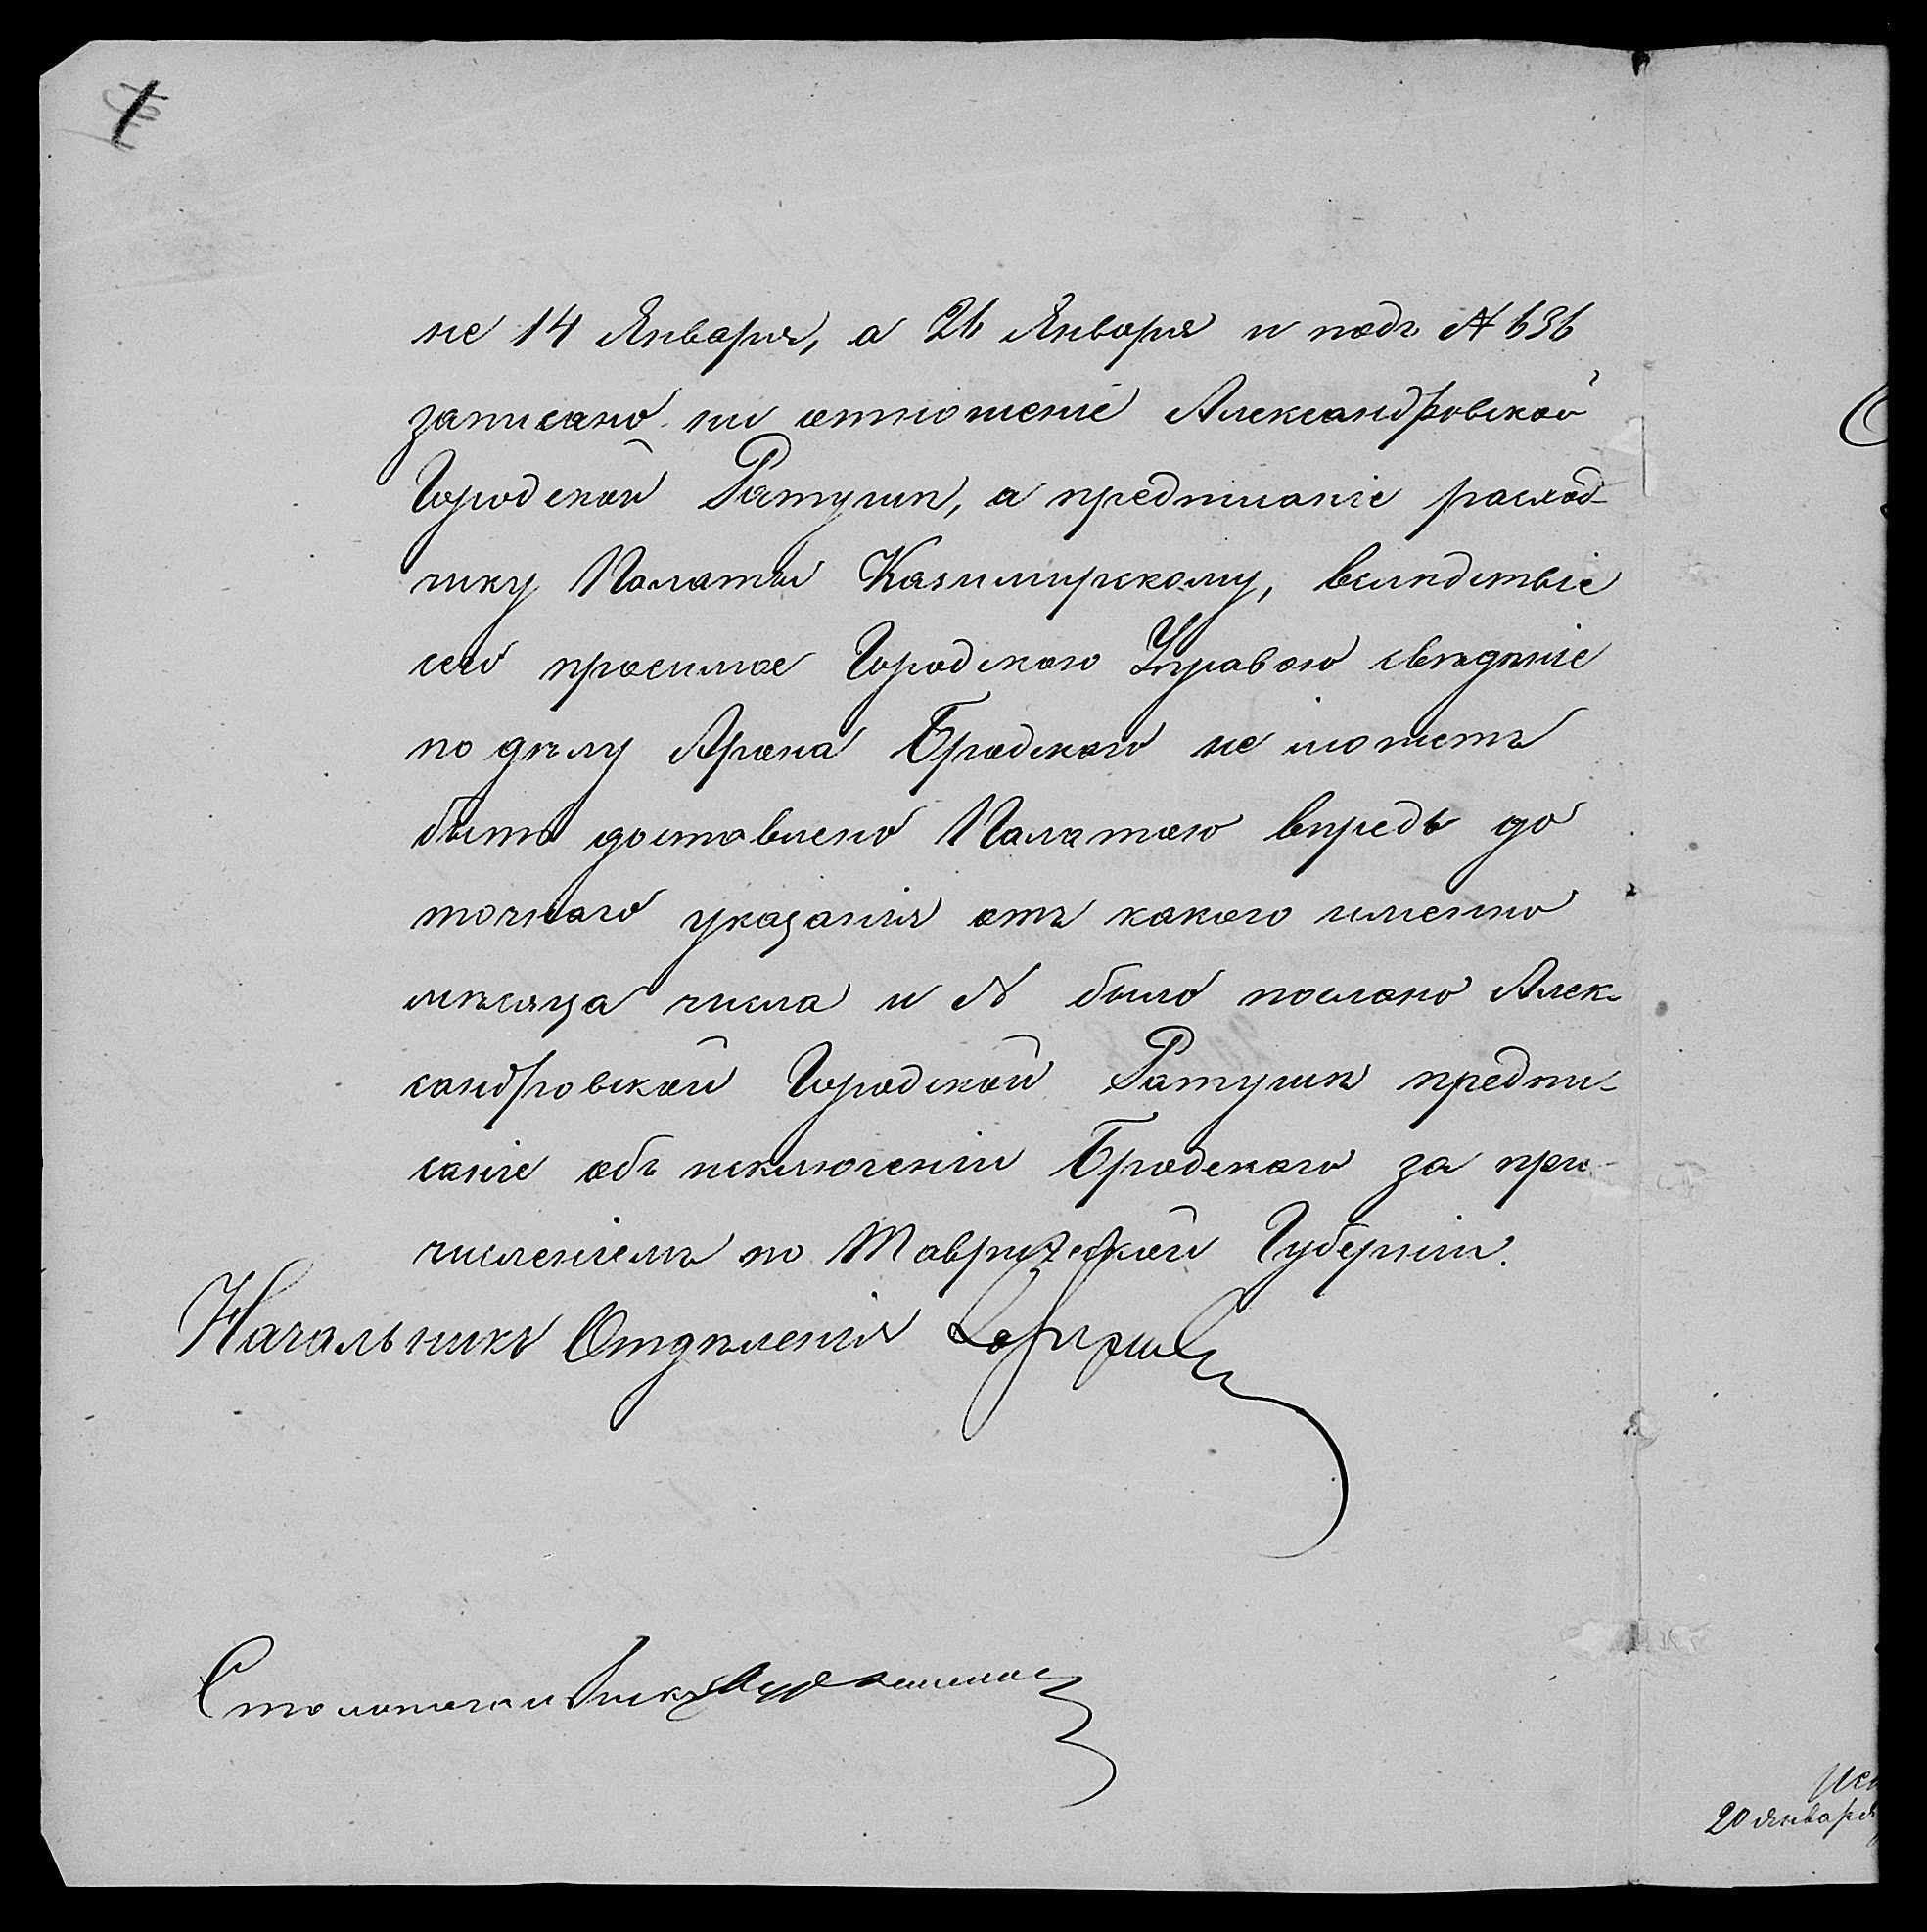 не 14 Января, а 26 Января и подъ № 636
записано не отношеніе Александровской
Городской Ратуши, а предписаніе расход-
чику Палаты Казимирскому, вслѣдствіе
сего просимое Городскою Управою свѣдѣніе
по дѣлу Арона Бродскаго не можетъ
быть доставлено Палатою впредь до
точнаго указанія отъ какого именно
мѣсяца числа и № было послано Алек-
сандровской Городской Ратушѣ предпи-
саніе объ исключеніи Бродскаго за при-
численіемъ по Таврической Губерніи.
Начальникъ Отдѣленія
Столоначальникъ
20 января